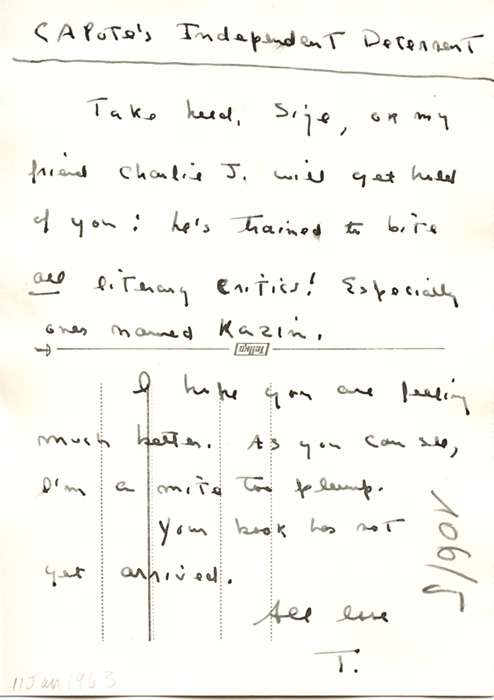 CAPOTE's Independent Deterrent
Take heed, Sige, or my
friend Charlie J. will get hold
of you! he's trained to bite
all literary critics! Especially
ones named Kazin.
Tellko
I hope you are feeling
much better. As you can see,
I'm a mite too plump.
Your book has not
yet arrived.
All love
T.
106/5
11 Jan 1963